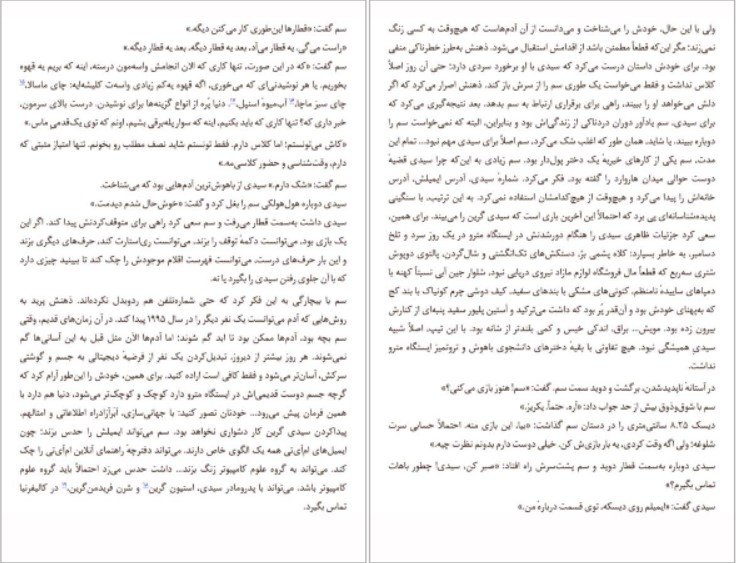 سم گفت: «قطارها این‌طوری کار می‌کنن دیگه.»
«راست می‌گی. یه قطار می‌آد، بعد یه قطار دیگه، بعد یه قطار دیگه.»
سم گفت: «که در این صورت، تنها کاری که الان انجامش واسه‌مون درسته، اینه که بریم یه قهوه
بخوریم. یا هر نوشیدنی‌ای که می‌خوری، اگه قهوه یه‌کم زیادی واسه‌ت کلیشه‌ایه: چای ماسالا،
چای سبز ماچا، آب‌میوهٔ اسنپل، دنیا پُره از انواع گزینه‌ها برای نوشیدن. درست بالای سرمون،
خبر داری که؟ تنها کاری که باید بکنیم، اینه که سوار پله‌برقی بشیم، اونم که توی یک‌قدمی ماس.»
«کاش می‌تونستم؛ اما کلاس دارم. فقط تونستم شاید نصف مطلب رو بخونم. تنها امتیاز مثبتی که
دارم، وقت‌شناسی و حضور کلاسی‌مه.»
سم گفت: «شک دارم.» سیدی از باهوش‌ترین آدم‌هایی بود که می‌شناخت.
سیدی دوباره هول‌هولکی سم را بغل کرد و گفت: «خوش‌حال شدم دیدمت.»
سیدی داشت به‌سمت قطار می‌رفت و سم سعی کرد راهی برای متوقف‌کردنش پیدا کند. اگر این
یک بازی بود، می‌توانست دکمهٔ توقف را بزند. می‌توانست ری‌استارت کند، حرف‌های دیگری بزند
و این بار حرف‌های درست. می‌توانست فهرست اقلام موجودش را چک کند تا ببیند چیزی دارد
که با آن جلوی رفتن سیدی را بگیرد یا نه.
سم با بیچارگی به این فکر کرد که حتی شماره‌تلفن هم ردوبدل نکرده‌اند. ذهنش پرید به
روش‌هایی که آدم می‌توانست یک نفر دیگر را در سال ۱۹۹۵ پیدا کند. در آن زمان‌های قدیم، وقتی
سم بچه بود، آدم‌ها ممکن بود تا ابد گم شوند؛ اما آدم‌ها الآن مثل قبل به این آسانی‌ها گم
نمی‌شوند. هر روز بیشتر از دیروز، تبدیل‌کردن یک نفر از فرضیهٔ دیجیتالی به جسم و گوشتی
سرکش، آسان‌تر می‌شود و فقط کافی است اراده کنید. برای همین، خودش را این‌طور آرام کرد که
گرچه جسم دوست قدیمی‌اش در ایستگاه مترو دارد کوچک و کوچک‌تر می‌شود، دنیا هم دارد با
همین فرمان پیش می‌رود... خودتان تصور کنید: با جهانی‌سازی، اَبَرآزادراه اطلاعاتی و امثالهم.
پیداکردن سیدی گرین کار دشواری نخواهد بود. سم می‌تواند ایمیلش را حدس بزند؛ چون
ایمیل‌های ام‌آی‌تی همه یک الگوی خاص دارند. می‌تواند دفترچهٔ راهنمای آنلاین ام‌آی‌تی را چک
کند. می‌تواند به گروه علوم کامپیوتر زنگ بزند... داشت حدس می‌زد احتمالاً باید گروه علوم
کامپیوتر باشد. می‌تواند با پدرومادر سیدی، استیون گرین و شرن فریدمن‌گرین، در کالیفرنیا
تماس بگیرد.
ولی با این حال، خودش را می‌شناخت و می‌دانست از آن آدم‌هاست که هیچ‌وقت به کسی زنگ
نمی‌زند؛ مگر این‌که قطعاً مطمئن باشد از اقدامش استقبال می‌شود. ذهنش به‌طرز خطرناکی منفی
بود. برای خودش داستان درست می‌کرد که سیدی با او برخورد سردی دارد؛ حتی آن روز اصلاً
کلاس نداشت و فقط می‌خواست یک طوری سم را از سرش باز کند. ذهنش اصرار می‌کرد که اگر
دلش می‌خواهد او را ببیند، راهی برای برقراری ارتباط به سم بدهد. بعد نتیجه‌گیری می‌کرد که
برای سیدی، سم یادآور دوران دردناکی از زندگی‌اش بود و بنابراین، البته که نمی‌خواست سم را
دوباره ببیند. یا شاید، همان طور که اغلب شک می‌کرد، سم اصلاً برای سیدی مهم نبود... تمام این
مدت، سم یکی از کارهای خیریهٔ یک دختر پول‌دار بود. سم زیادی به این‌که چرا سیدی قضیهٔ
دوست حوالی میدان هاروارد را گفته بود، فکر می‌کرد. شمارهٔ سیدی، آدرس ایمیلش، آدرس
خانه‌اش را پیدا می‌کرد و هیچ‌وقت از هیچ‌کدامشان استفاده نمی‌کرد. به این ترتیب، با سنگینی
پدیده‌شناسانه‌ای پی برد که احتمالاً این آخرین باری است که سیدی گرین را می‌بیند. برای همین،
سعی کرد جزئیات ظاهری سیدی را هنگام دورشدنش در ایستگاه مترو در یک روز سرد و تلخ
دسامبر، به خاطر بسپارد: کلاه پشمی بژ، دستکش‌های تک‌انگشتی و شال‌گردن، پالتوی دوپوش
شتری سه‌ربع که قطعاً مال فروشگاه لوازم مازاد نیروی دریایی نبود، شلوار جین آبی نسبتاً کهنه با
دمپاهای ساییدهٔ نامنظم، کتونی‌های مشکی با بندهای سفید، کیف دوشی چرم کونیاک با بند کج
که به‌پهنای خودش بود و آن‌قدر پُر بود که داشت می‌ترکید و آستین پلیور سفید پنبه‌ای از کنارش
بیرون زده بود. مویش... براق، اندکی خیس و کمی بلندتر از شانه بود. با این تیپ، اصلاً شبیه
سیدیِ همیشگی نبود. هیچ تفاوتی با بقیهٔ دخترهای دانشجوی باهوش و تروتمیز ایستگاه مترو
نداشت.
در آستانهٔ ناپدیدشدن، برگشت و دوید سمت سم. گفت: «سم! هنوز بازی می‌کنی؟»
سم با شوق‌وذوق بیش از حد جواب داد: «آره. حتماً. یکریز.»
دیسک ۸.۲۵ سانتی‌متری را در دستان سم گذاشت: «بیا. این بازی منه. احتمالاً حسابی سرت
شلوغه؛ ولی اگه وقت کردی، یه بار بازی‌ش کن. خیلی دوست دارم بدونم نظرت چیه.»
سیدی دوباره به‌سمت قطار دوید و سم پشت‌سرش راه افتاد: «صبر کن، سیدی! چطور باهات
تماس بگیرم؟»
سیدی گفت: «ایمیلم روی دیسکه، توی قسمت دربارهٔ من.»